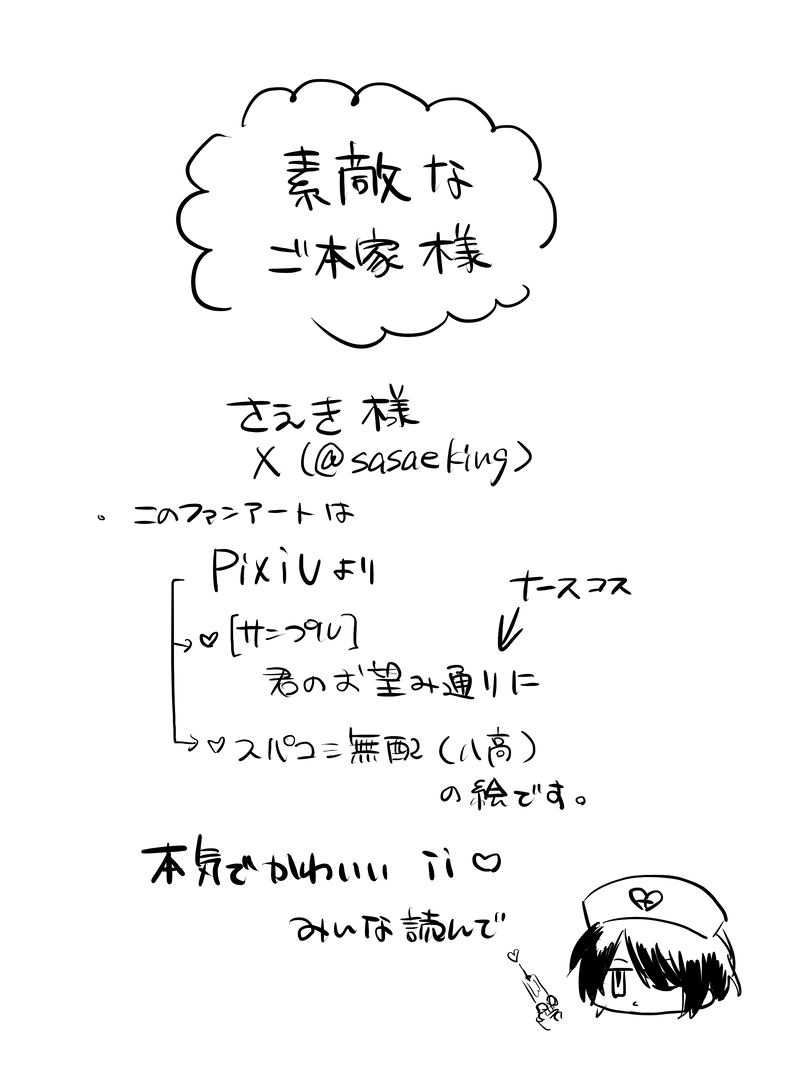 素敵な
ご本家様
さえき様
X (@sasaeking)
。このファンアートは
Pixivより
ナースコス
♡[サンプル]
君のお望み通りに
♡スパコミ無配2(八高)
の絵です。
本気でかわいい ii♡
みんな読んで